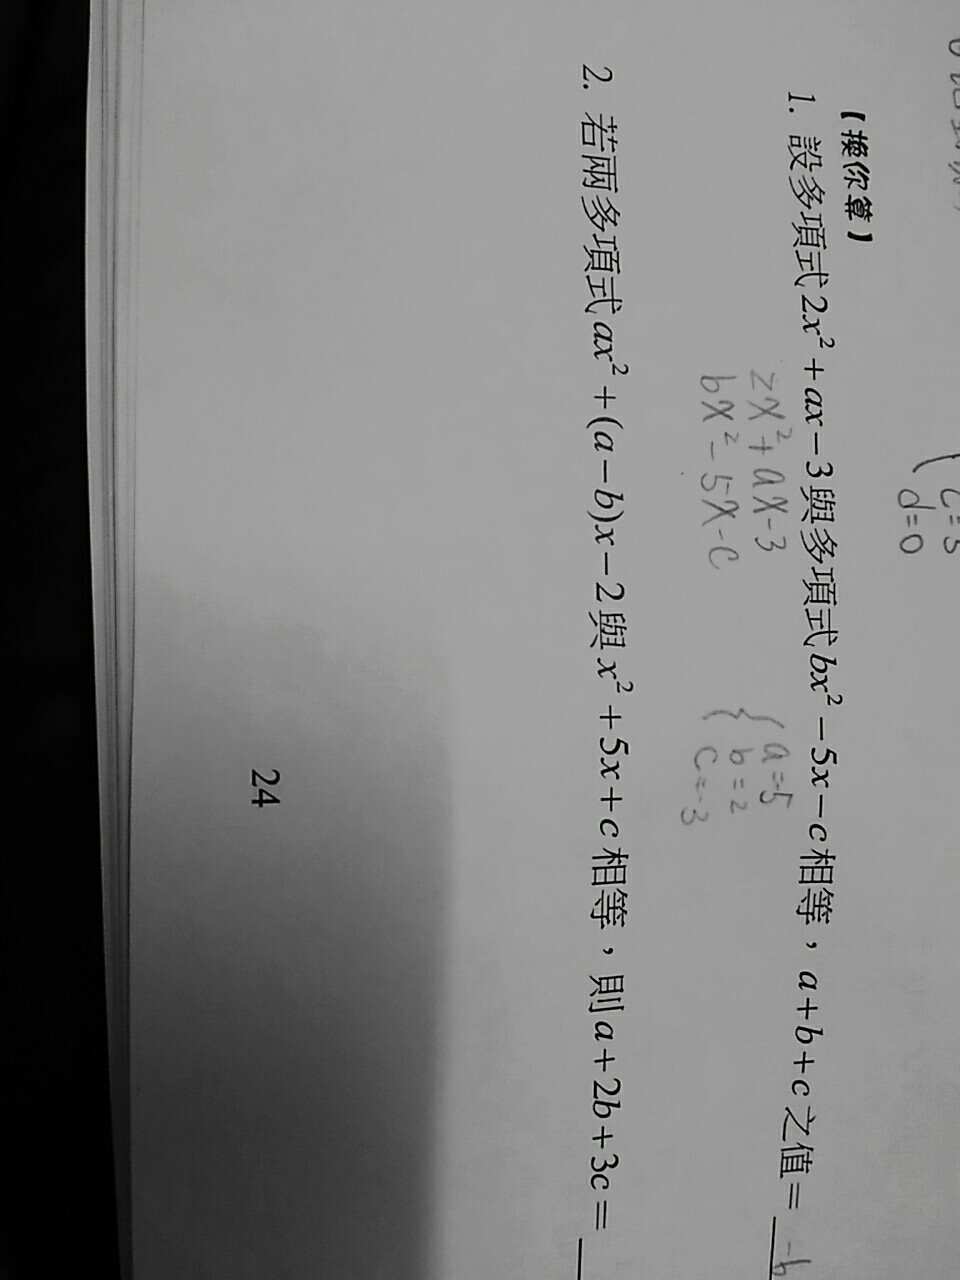 c=5
d=0
【換你算】
1. 設多項式2x²+ax−3與多項式bx²−5x−c相等，a+b+c之值= -6
2x²+ax-3
bx²-5x-c
{a=-5
b=2
c=-3
2. 若兩多項式ax²+(a−b)x−2與x²+5x+c相等，則a+2b+3c=
24